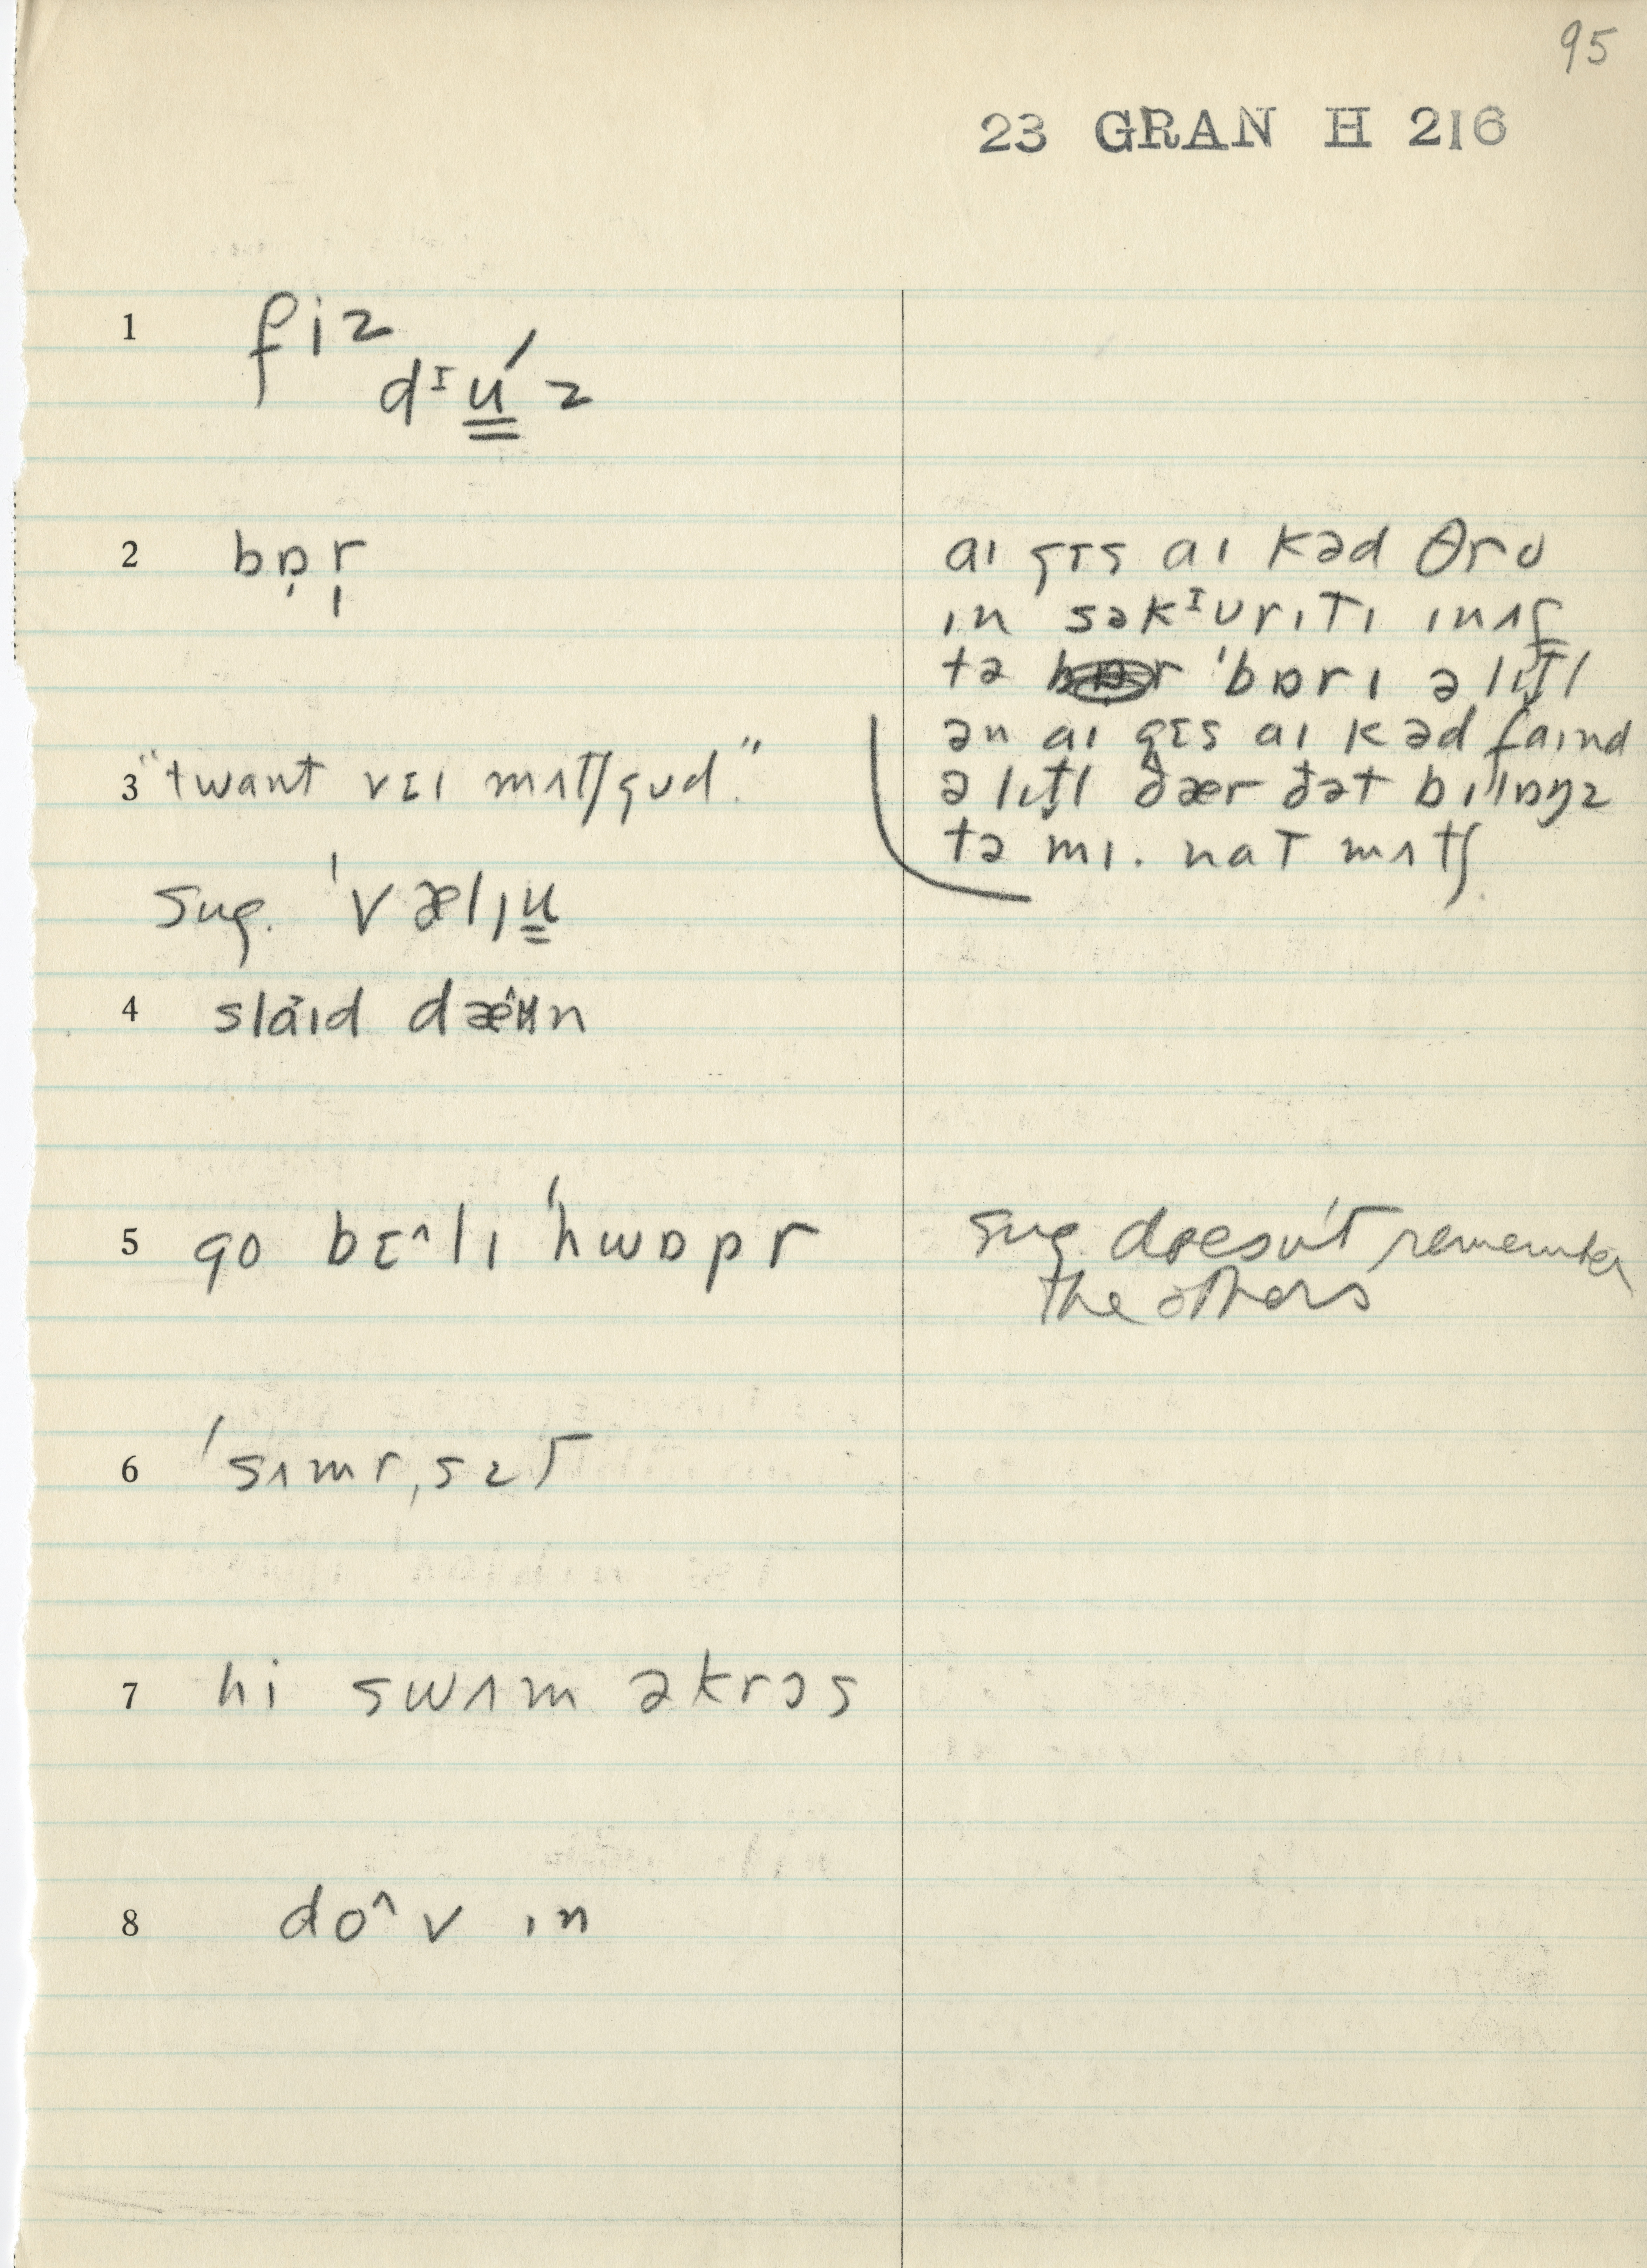 95
23 GRAN H 216
1 fiz
dᶦú̳z
2 bɒ̣r̩
aɪ gɛs aɪ kəd θro
ɪn səkᶦʊrɪtɪ ɪnʌf
tə 'bɒrɪ ə lɪt̬l
ən aɪ gɛs aɪ kəd faɪnd
ə lɪt̬l ðær ðət bɪ'lɒŋz
tə mɪ. nat mʌtʃ
3 "twant vɛɪ mʌtʃ gʊd."
Sug. 'vælɪu̳
4 slaɪd dæʉn
5 go bɛ^lɪ 'hwɒpr
Sug. doesn't remember
the others
6 'sʌmr,sɛt
7 hi swʌm əkrɔs
8 do^v ɪn